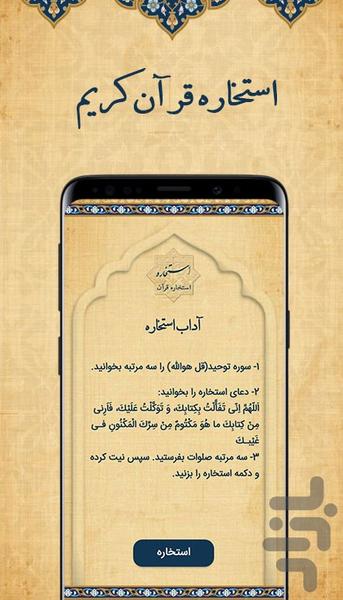 استخاره قرآن کریم
استخاره
استخاره قرآن
آداب استخاره
۱- سوره توحید(قل هوالله) را سه مرتبه بخوانید.
۲- دعای استخاره را بخوانید:
اَللّهُمَّ اِنّى تَفَأَّلْتُ بِكِتابِكَ، وَ تَوَكَّلْتُ عَلَيْكَ، فَاَرِنى
مِنْ كِتابِكَ ما هُوَ مَكْتُومٌ مِنْ سِرِّكَ الْمَكْنُونِ فى
غَيْبِكَ
۳- سه مرتبه صلوات بفرستید. سپس نیت کرده
و دکمه استخاره را بزنید.
استخاره
بازار